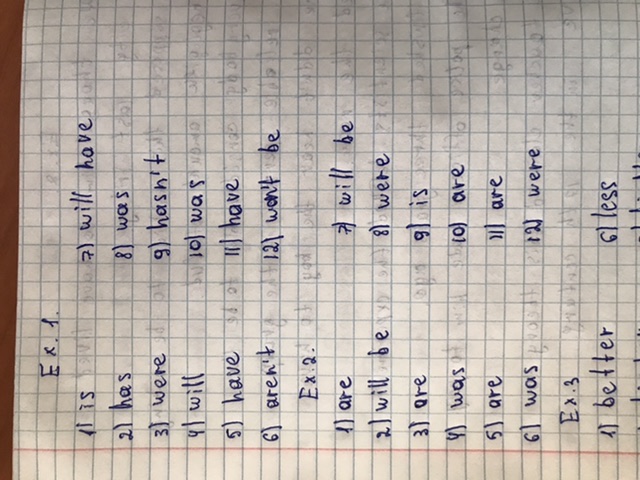 Ex. 1.
1) is 7) will have
2) has 8) was
3) were 9) hasn't
4) will 10) was
5) have 11) have
6) aren't 12) won't be
Ex. 2.
1) are 7) will be
2) will be 8) were
3) are 9) is
4) was 10) are
5) are 11) are
6) was 12) were
Ex. 3
1) better 6) less